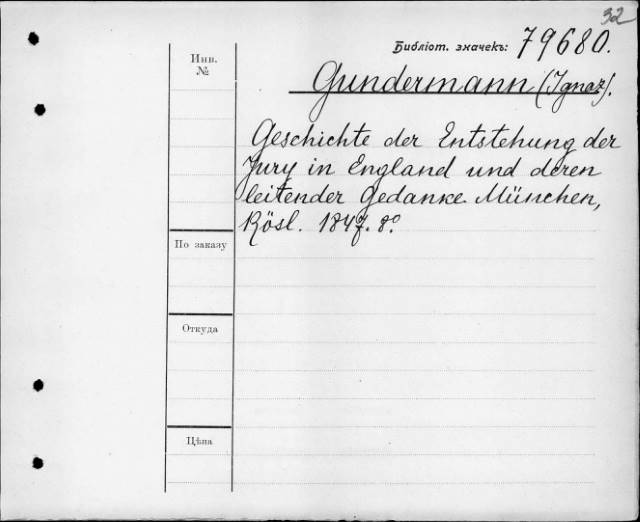 32
Библіот. значекъ: 79680.
Инв.
№
Gundermann (Ignaz).
Geschichte der Entstehung der
Jury in England und deren
leitender Gedanke. München,
Rösl. 1847. 8°.
По заказу
Откуда
Цѣна